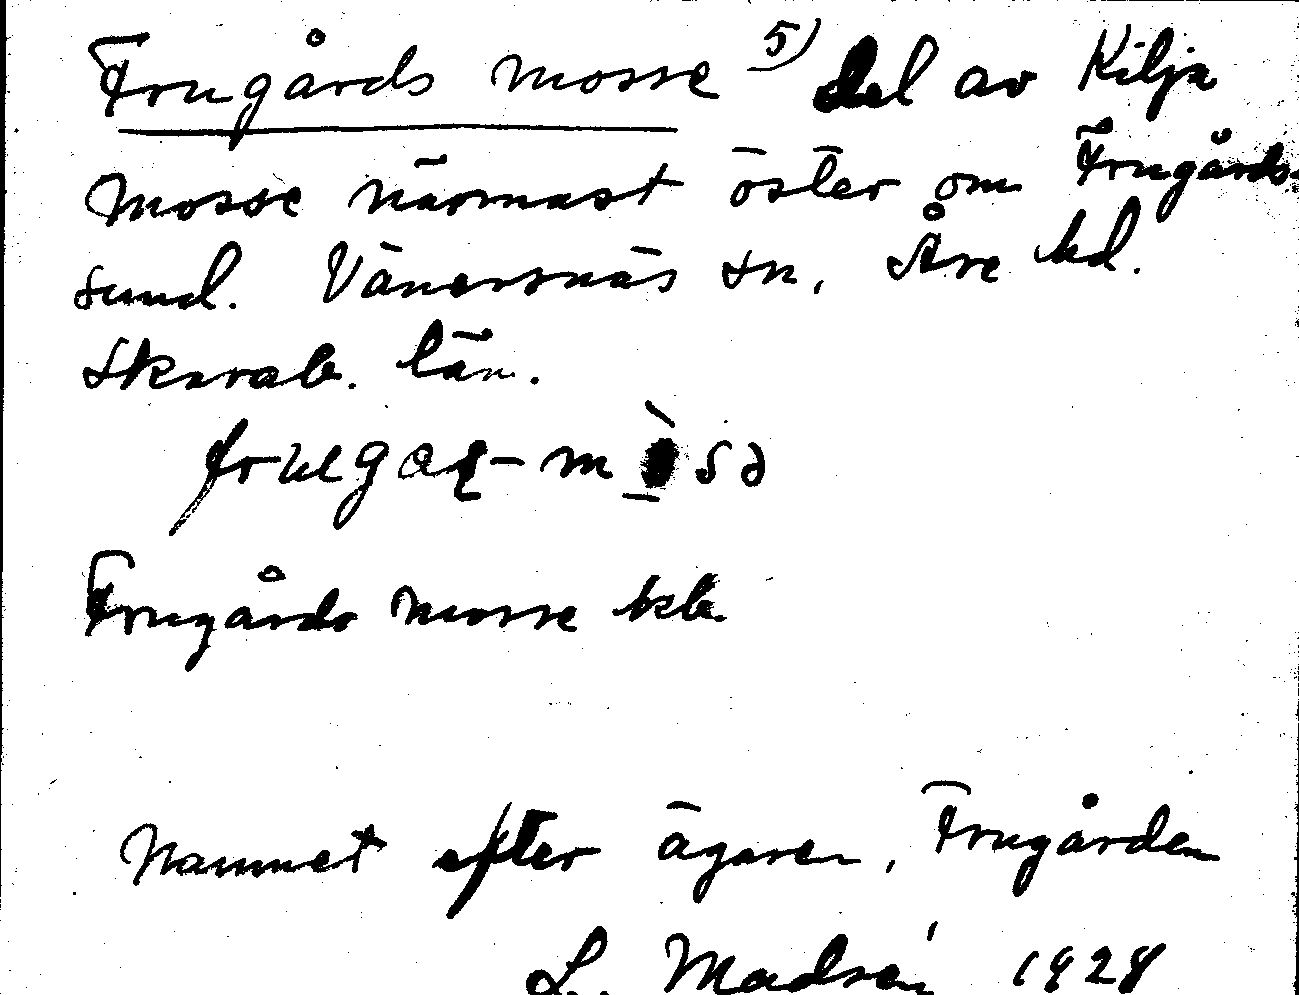 Frugårds mosse 5) del av Kilja
mosse närmast öster om Frugårds-
sund. Vänersnäs sn, Åre hd.
Skarab. län.
Frugårds mosse kb.
Namnet efter ägaren, Frugården
L. Madsén 1928